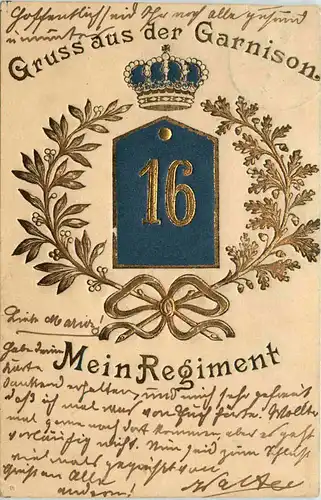 Hoffentlich seid Ihr noch alle gesund
u. munter
Gruss aus der Garnison.
16
Liebe Marie!
Mein Regiment
Habe Deine
Karte
dankend erhalten, und mich sehr gefreut
daß ich mal was von Euch hörte. Wollte
mal gerne nach dort kommen, aber es geht
vorläufig nicht. Nun seid zum Schluß
viel mals gegrüßt von
Gruß an Alle
andern!
Walter